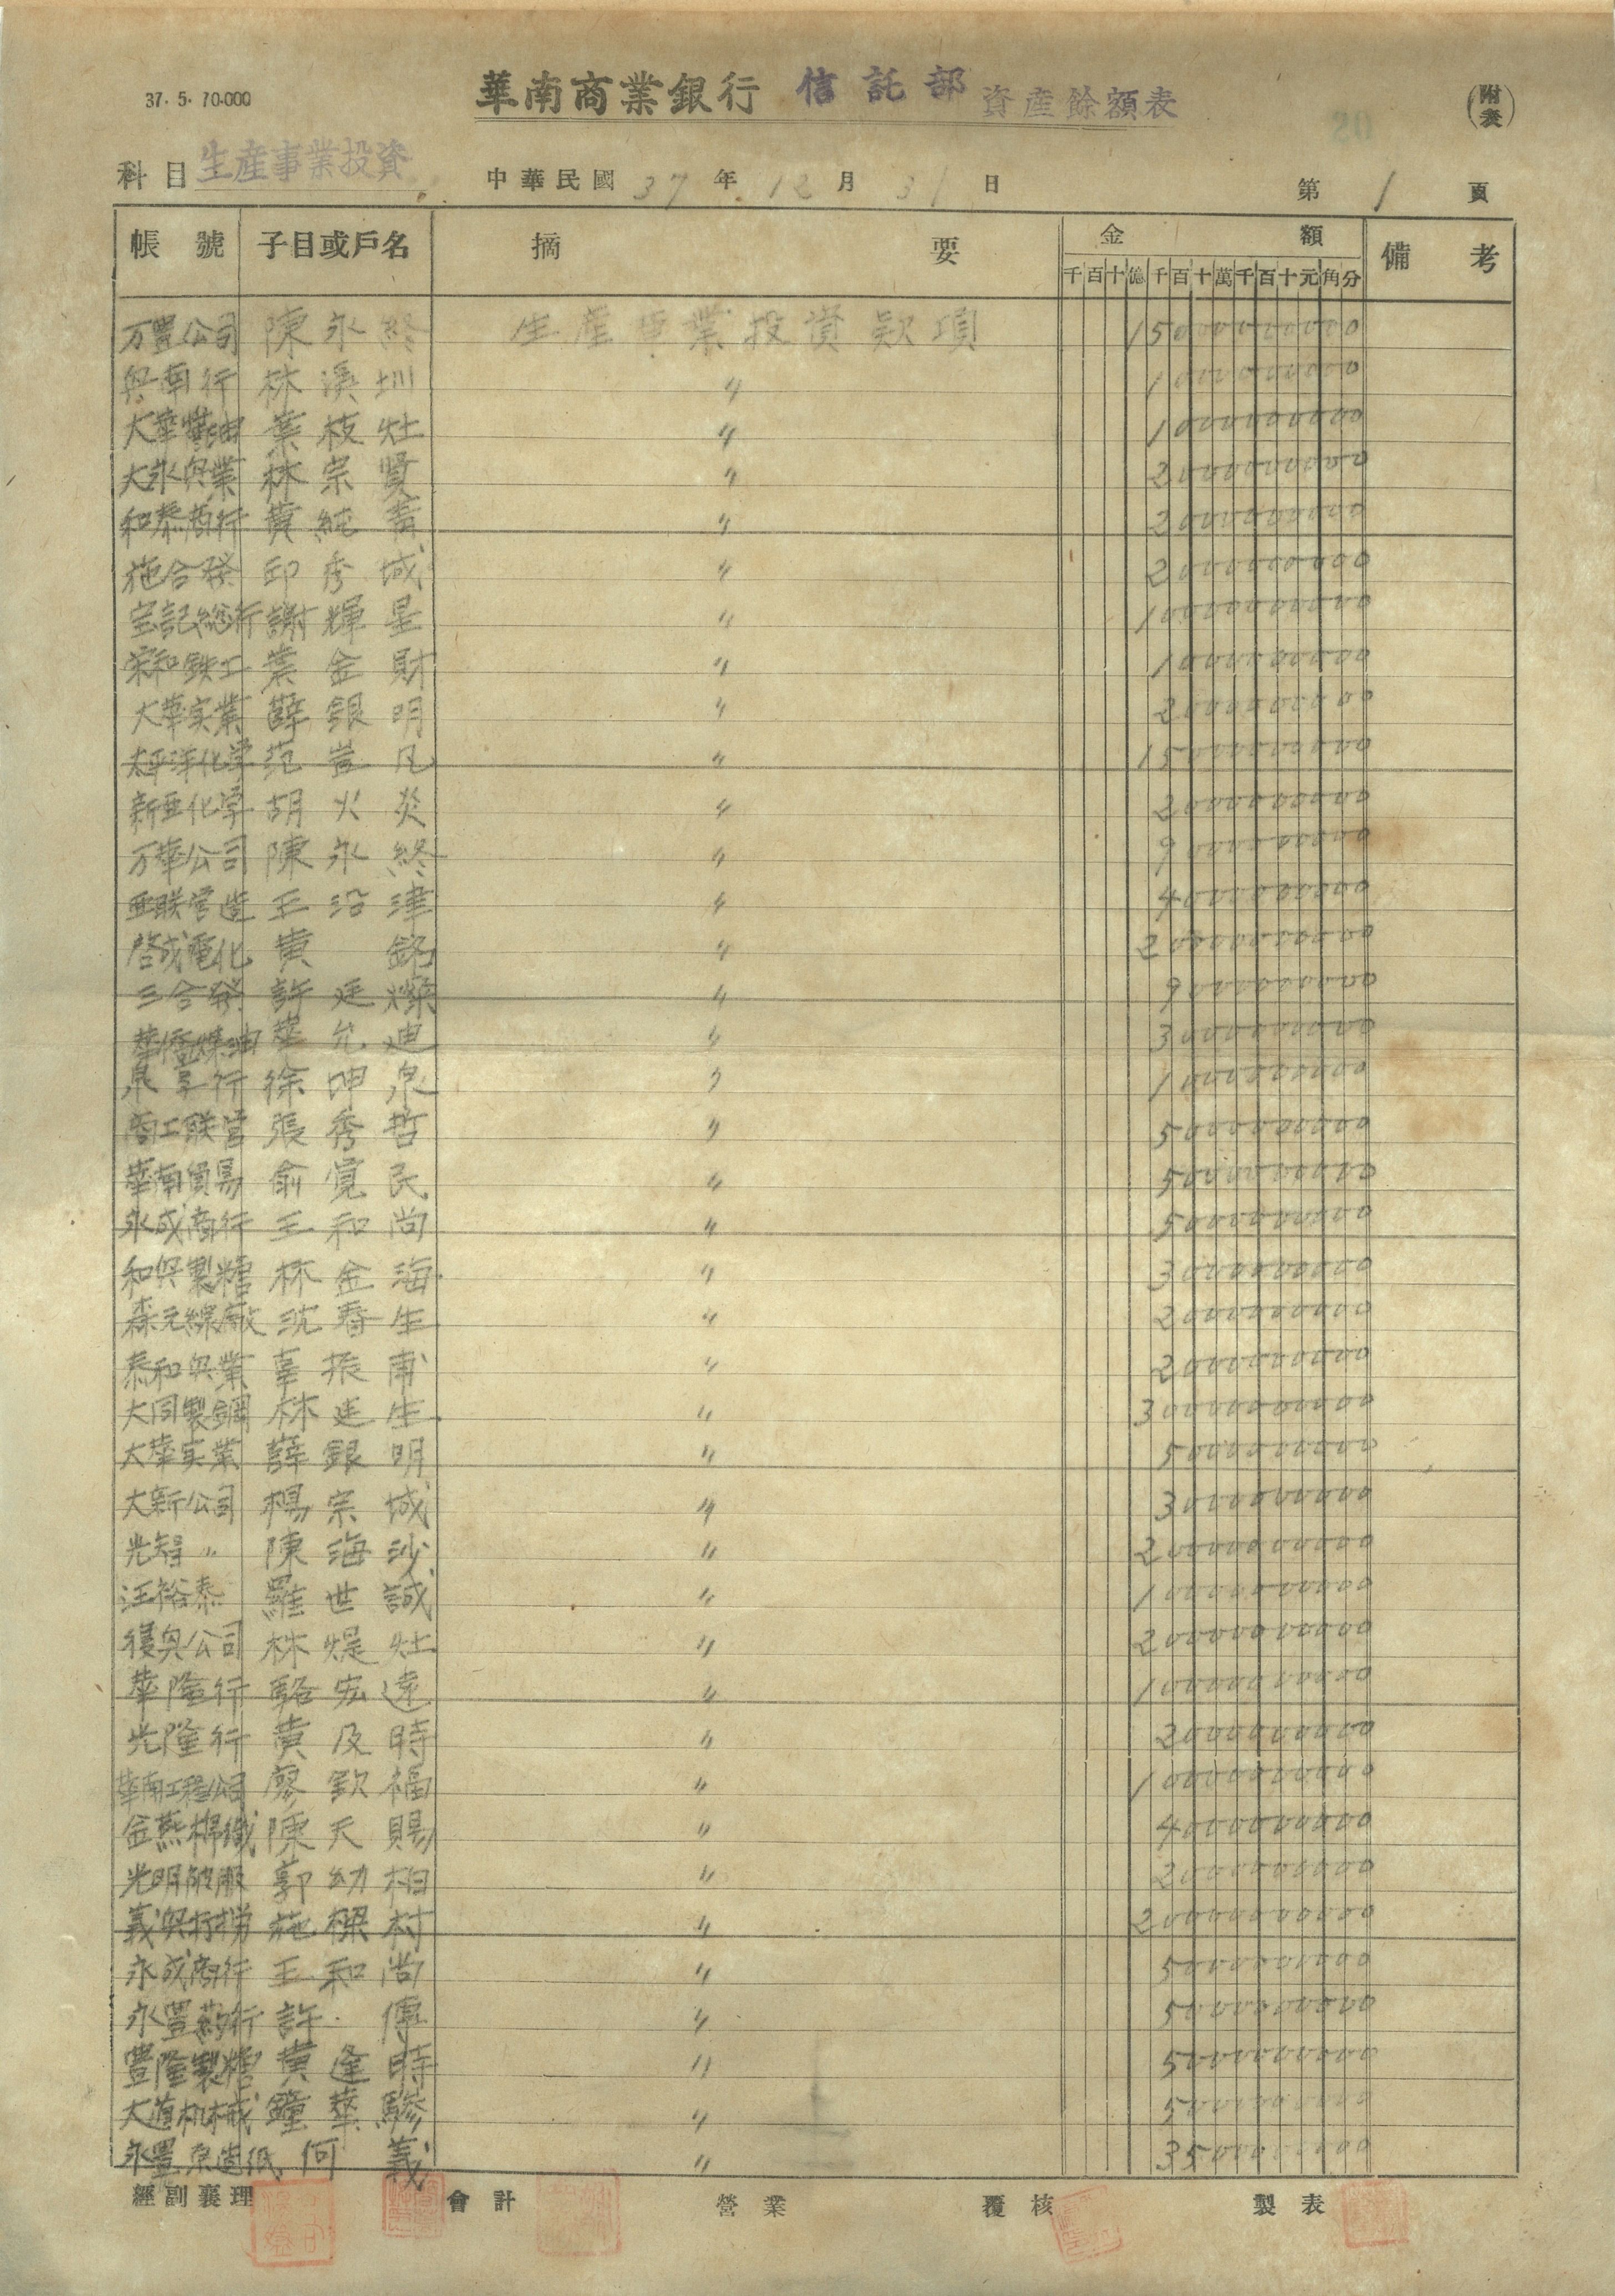 37.5.10.000
華南商業銀行 信託部 資產餘額表
(附表)
20
科目 生產事業投資 中華民國 37 年 12 月 31 日 第 1 頁
帳號 子目或戶名 摘要 金額 備考
千百十億千百十萬千百十元角分
万豊公司 陳永終 生產事業投資款項 15000000000
興南行 林溪圳 〃 1000000000
大華煤油 葉枝灶 〃 1000000000
大永興業 林宗賢 〃 2000000000
和泰商行 黃純青 〃 2000000000
施合發 邱秀城 〃 2000000000
宝記総行 謝輝星 〃 10000000000
宋和鉄工 葉金財 〃 1000000000
大華実業 薛銀明 〃 2000000000
太平洋化学 范 凡 〃 15000000000
新亜化学 胡火炎 〃 2000000000
万華公司 陳永終 〃 9000000000
亜联营造 王沿津 〃 4000000000
啓成電化 黃銘 〃 20000000000
三合發 許廷燦 〃 9000000000
華僑煤油 葉允迪 〃 3000000000
泉 行 徐坤泉 〃 1000000000
商工联营 張秀哲 〃 5000000000
華南貿易 俞寬民 〃 5000000000
永成商行 王和尚 〃 5000000000
和興製糖 林金海 〃 3000000000
森元線廠 沈春生 〃 2000000000
泰和興業 辜振甫 〃 2000000000
大同製鋼 林廷生 〃 30000000000
大華実業 薛銀明 〃 5000000000
大新公司 楊宗城 〃 3000000000
光智〃 陳海沙 〃 20000000000
汪裕泰 羅世誠 〃 10000000000
復興公司 林煶灶 〃 20000000000
華隆行 駱宏遠 〃 10000000000
光隆行 黃及時 〃 2000000000
華南工程公司 廖欽福 〃 10000000000
金燕棉織 陳天賜 〃 4000000000
光明被服 郭幼柏 〃 2000000000
義興 施樑村 〃 20000000000
永成商行 王和尚 〃 5000000000
永豊葯行 許傳 〃 5000000000
豐隆製糖 黃逢時 〃 5000000000
大道机械 鐘華 〃 5000000000
永豊原造纸 何義 〃 3500000000
經副襄理 會計 營業 覆核 製表